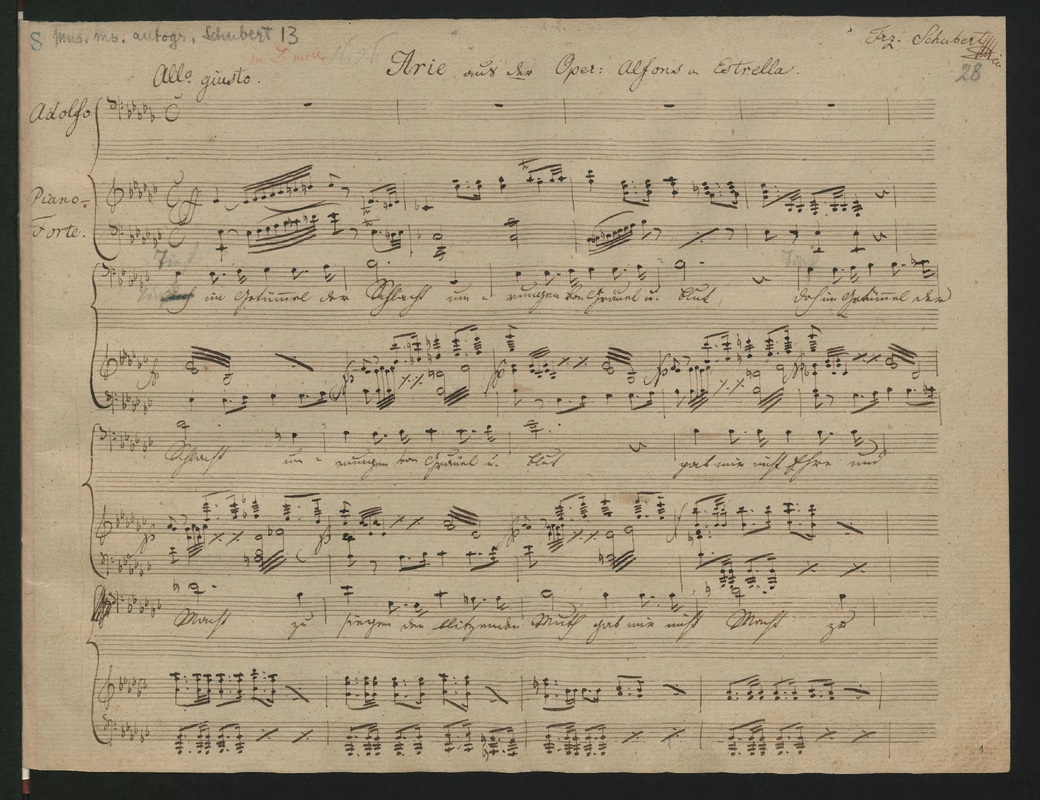 S mus. ms. autogr. Schubert 13
Frz. Schubert
in D moll. No. 26
28
Arie aus der Oper: Alfons u Estrella.
Allo. giusto.
Adolfo
Piano-
Forte.
ff
im Getümmel der Schlacht um - rungen von Gräuel u. Blut, doch im Getümmel der
Schlacht um - rungen von Gräuel u. Blut gab mir nicht Ehre und
Macht zu siegen den blitzenden Muth gab mir nicht Macht zu